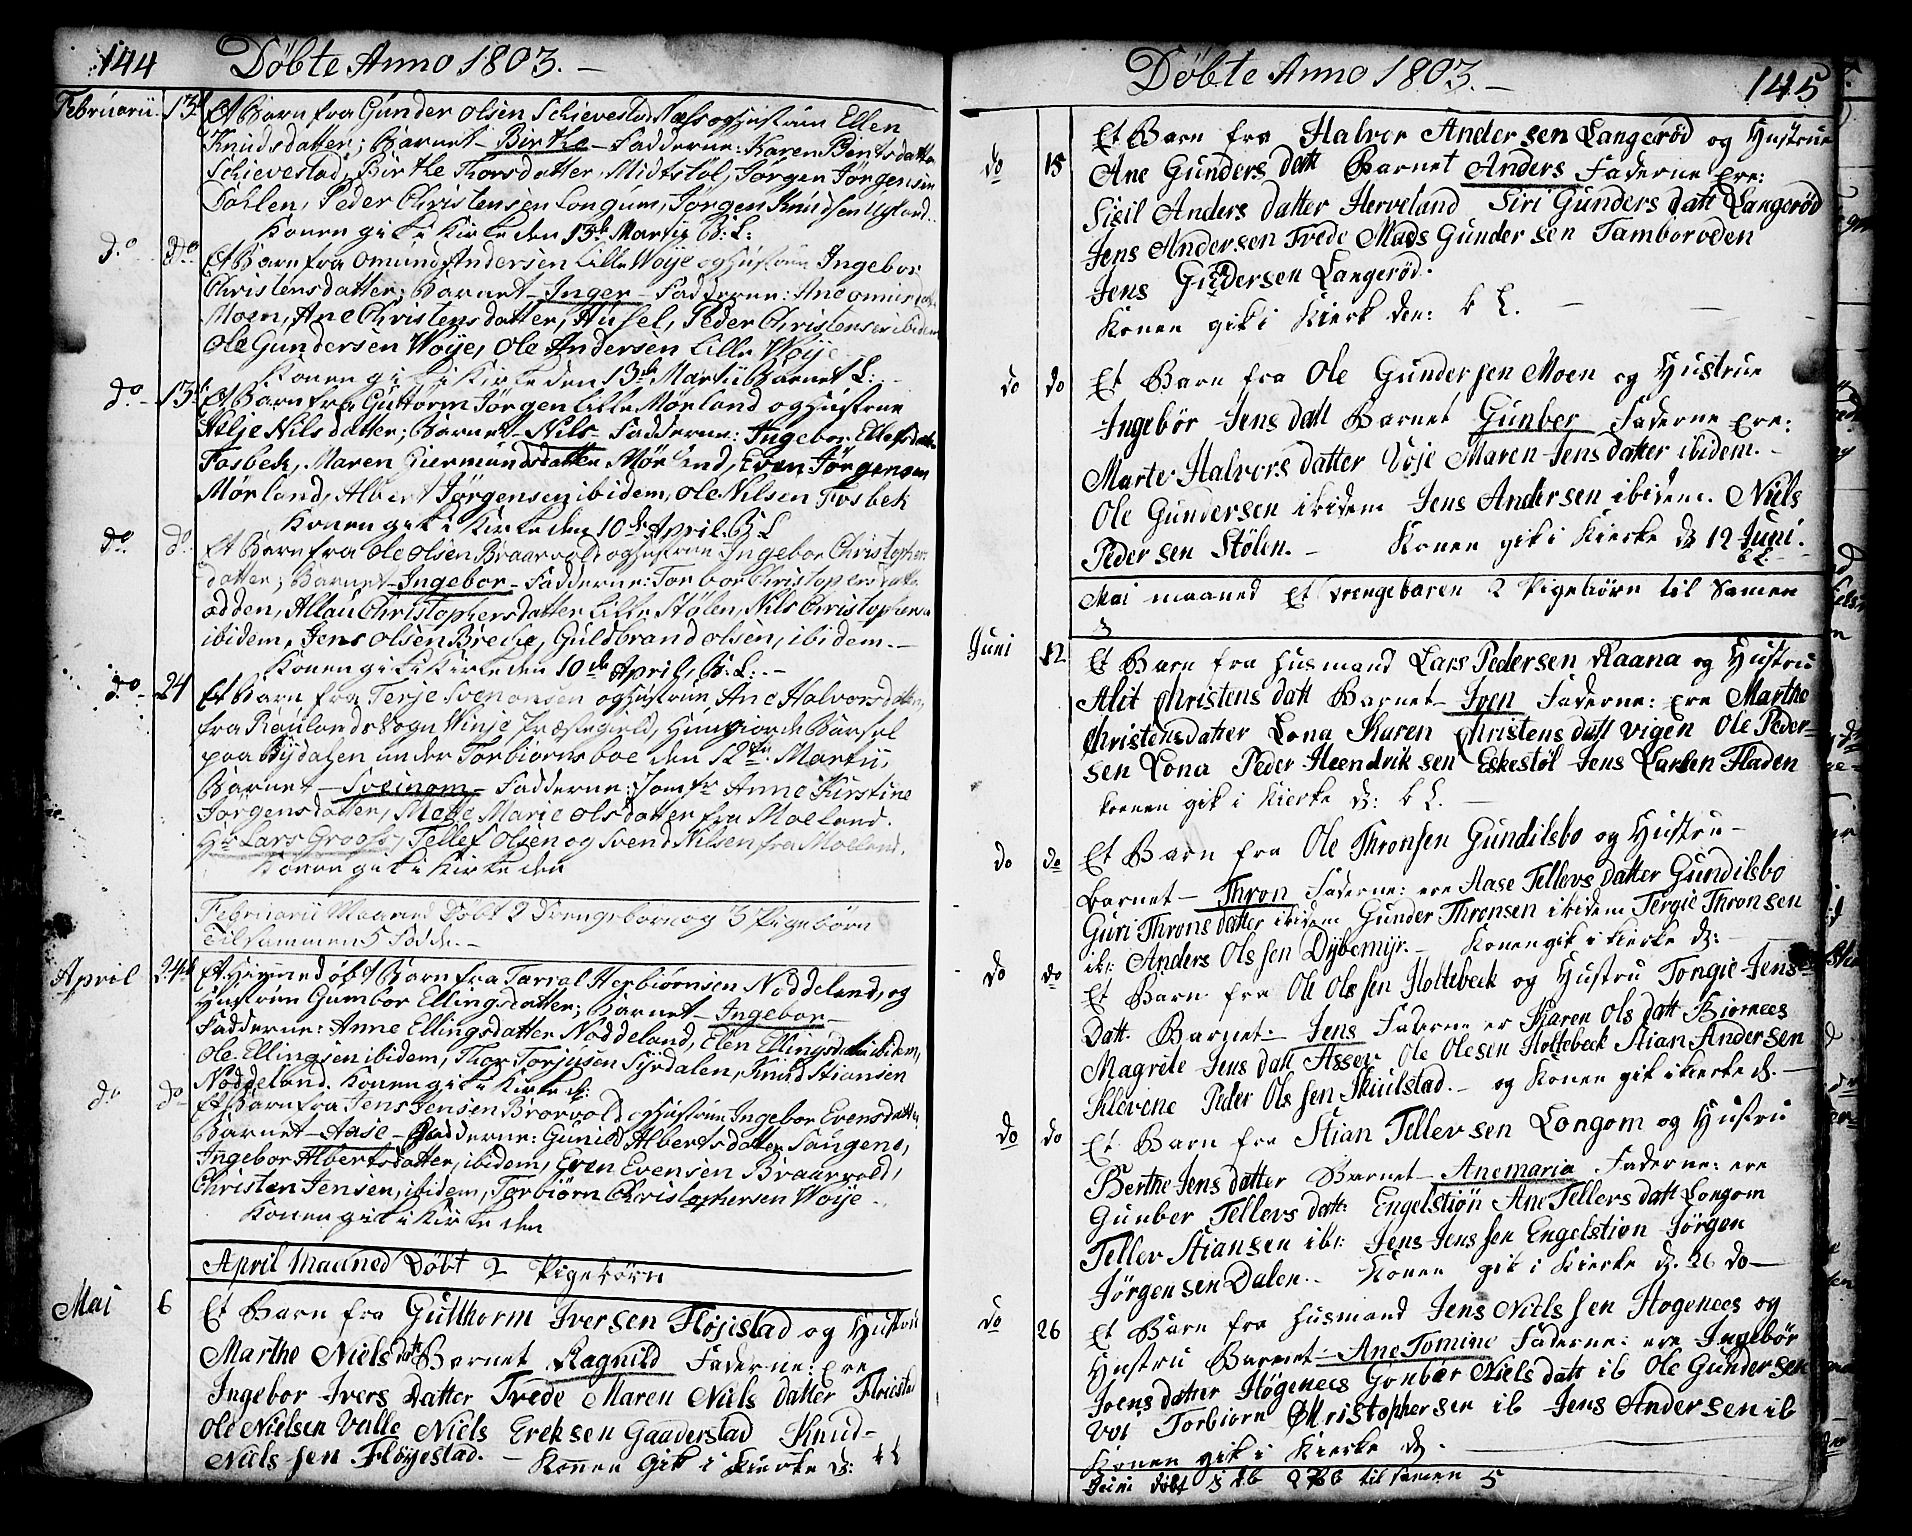 144 Døbte Anno 1803.
Februarii 13de Et Barn fra Gunder Olsen Schievestad Næss og Hustrue Ellen
Knudsdatter; Barnet - Birthe - Fadderne: Karen Bentsdatter
Schievestad, Birthe Thorsdatter Midtstøl, Jørgen Jørgensen
Dahlen, Peder Christensen Longum, Jørgen Knudsen Ugland.
Konen gik i Kirke den 13de Martii B: L:
do do Et Barn fra Omund Andersen Lille Woije og Hustrue Ingebor
Christensdatter; Barnet - Inger - Fadderne: Ane Omunds
Moen, Ane Christensdatter, Peder Christensen ibidem
Ole Gundersen Woije, Ole Andersen Lille Woije
Konen gik i Kirke den 13de Martii Barnet L:
do 13de Et Barn fra Guttorm Jørgen Lille Mørland og Hustrue
Helje Nilsdatter; Barnet - Nils - Fadderne: Ingebor Ellefsdatter
Fosbek, Maren Giermundsdatter Mørland, Even Jørgensen
Mørland, Albert Jørgensen ibidem, Ole Nilsen Fosbek
Konen gik i Kirke den 10de April. B: L
do do Et Barn fra Ole Olsen Braarvold og Hustrue Ingebor Christophers
datter; Barnet - Ingebor - Fadderne: Torbor Christophersdatter
Odden, Allau Christophersdatter Lille Stølen, Nils Christophersen
ibidem, Jens Olsen Brecke, Guldbrand Olsen, ibidem.
Konen gik i Kirke den 10de April, B: L:
do 24 Et Barn fra Terje Svenomsen og Hustrue Ane Halvorsdatter
fra Raulands Sogn Winje Præstegield, Hun giorde Barsel
paa Bydalen under Torbiørnsboe den 12te Martii,
Barnet - Sveinom - Fadderne: Jomfr Anne Kirstine
Jørgensdatter, Mette Marie Olsdatter fra Moeland.
Hr Lars Groass, Tellef Olsen og Svend Nilsen fra Moeland.
Konen gik i Kirke den
Februarii Maaned Døbt 2 Drengebørn og 3 Pigebørn
Tilsammen 5 Fødde.
April 24de Et Hiemmedøbt Barn fra Tarral Herbiørnsen Noddeland, og
Hustrue Gumbor Ellingsdatter; Barnet - Ingebor -
Fadderne: Anne Ellingsdatter Noddeland, Elen Ellingsdatter ibidem,
Ole Ellingsen ibidem, Thor Torjusen Syrdalen, Knud Stiansen
Noddeland. Konen gik i Kirke d:
do do Et Barn fra Jens Jensen Brorvold og Hustrue Ingebor Evensdatter,
Barnet - Aase - Fadderne: Gunild Albertsdatter Sangene,
Ingebor Albertsdatter, ibidem, Even Evensen Braarvold,
Christen Jensen, ibidem, Torbiørn Christophersen Woije -
Konen gik i Kirke den
April Maaned Døbt 2 Pigebørn
Mai 6 Et Barn fra Gutthorm Iversen Fløjistad og Hustru
Marthe Niels datt Barnet Ragnild Faderne: ere
Ingebor Ivers Datter Trede Maren Niels datter Fløiestad
Ole Nielsen Valle Niels Ereksen Gaaderstad Knud
Niels sen Fløyestad. - Konen Gik i Kierke d: b L
Døbte Anno 1803. 145
do 15 Et Barn fra Halvor Andersen Langerød og Hustrue
Ane Gunders datt Barnet Anders Faderne ere:
Sisil Anders datter Herveland Siri Gunders datt Langerød
Jens Andersen Trede Mads Gundersen Tamboroden
Jens Gundersen Langerød.
Konen gik i Kierk den: b L.
do do Et Barn fra Ole Gundersen Moen og Hustrue
Ingebør Jens datt Barnet Gunber Faderne ere:
Marte Halvors datter Voje Maren Jens datter ibidem.
Ole Gundersen ibidem Jens Andersen ibidem. Niels
Pedersen Stølen. - Konen gik i Kierke d 12 Juni.
b L.
Mai maaned Et Drengebaren 2 Pigebörn til Samen
3
Juni 12 Et Barn fra Husmand Lars Pedersen Raana og Hustru
Alit Christens datt Barnet - Iven Faderne: ere Marthe
Christensdatter Lona Karen Christens datt Vigen Ole Peder-
sen Lona Peder Heendriksen Eskestøl Jens Larsen Fladen
konen gik i Kierke d: b L.
do do Et Barn fra Ole Thronsen Gundilsbo og Hustru -
Barnet - Thron Faderne: ere Aase Tellevs datter Gundilsbo
Guri Throns datter ibidem Gunder Thronsen ibidem Tergie Thronsen
ib: Anders Olssen Dybemyr. - Konen gik i Kierke d:
do do Et Barn fra Ole Olssen Holtebeck og Hustru Tongie Jens-
Datt. Barnet - Jens Faderne er Karen Ols datt Biørnees
Magrete Jens datt Asser Ole Olesen Holtebeck Stian Andersen
Klevene Peder Olssen Skiulstad. - og Konen gik i Kierke d. -
do do Et Barn fra Stian Tellevsen Longom og Hustru
Berthe Jens datter Barnet - Anemaria Faderne: ere
Gunber Tellevs datt: Engelstiøn Ane Tellevs datt Longom
Tellev Stiansen ib: Jens Jenssen Engelstion Jørgen
Jørgensen Dalen. - Konen gik i Kierke d. 26 do -
do 26 Et Barn fra Husmand Jens Nielssen Hogenees og
Hustru Barnet - Ane Tomine Faderne: ere Ingebør
Joensdatter Høgenees Gonbær Niels datt ib Ole Gundersen
Voi Torbiorn Christophersen ib Jens Andersen ib
Konen gik i Kierke d.
Juni døbt 3 db 2 PB til samen 5